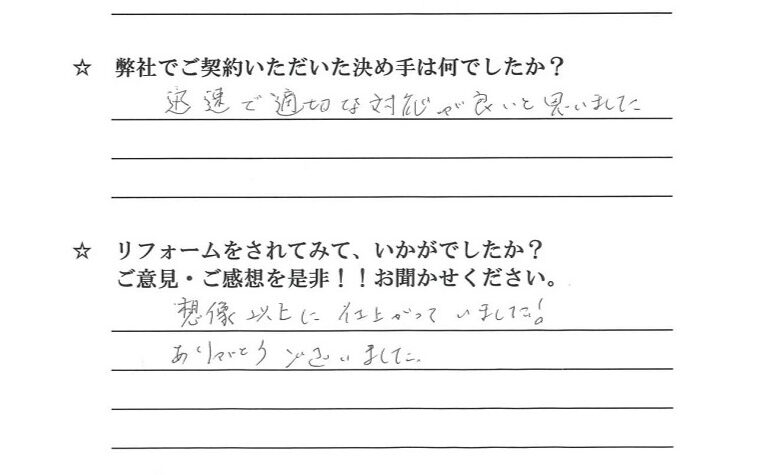 ☆ 弊社でご契約いただいた決め手は何でしたか？
迅速で適切な対応が良いと思いました
☆ リフォームをされてみて、いかがでしたか？
ご意見・ご感想を是非！！お聞かせください。
想像以上に仕上がっていました！
ありがとうございました。